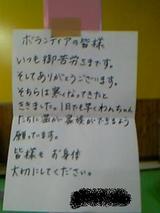 ボランティアの皆様
いつも御苦労さまです。
そしてありがとうございます。
そちらは寒くなってきたと
ききました。1日でも早くわんちゃん
たちに里が家族ができるよう
願っています。
皆様も お身体
大切にしてください。